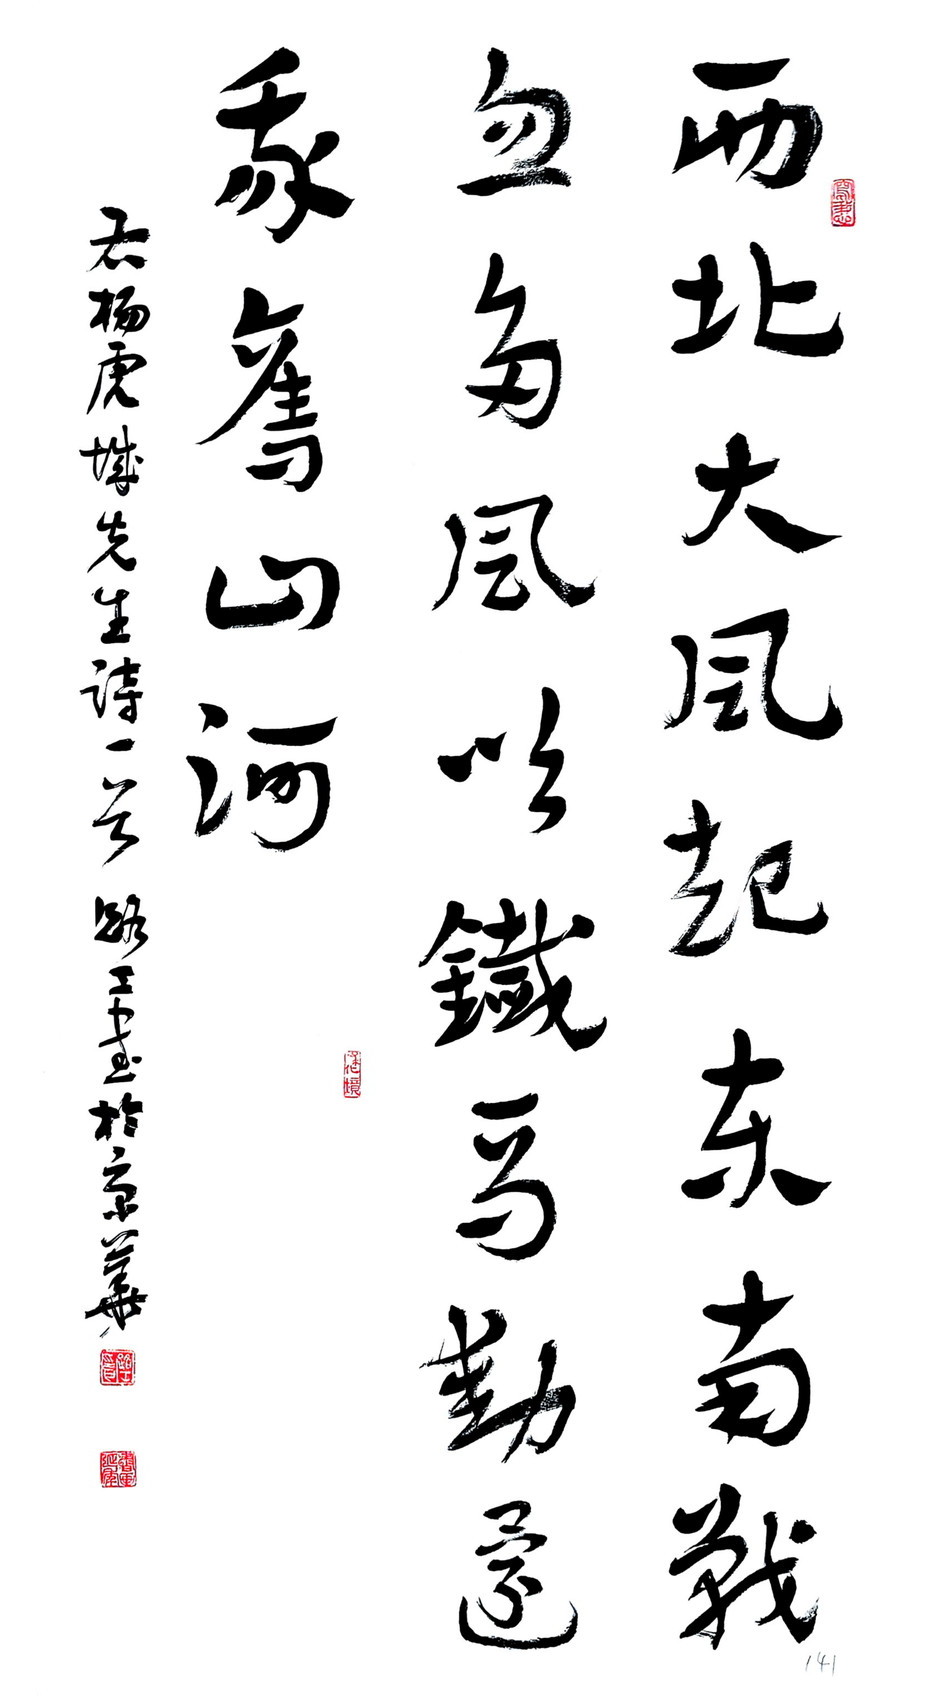 西北大风起东南戰
血多风吹鐵马動還
我舊山河
右杨虎城先生詩一首 路工書於京華
141